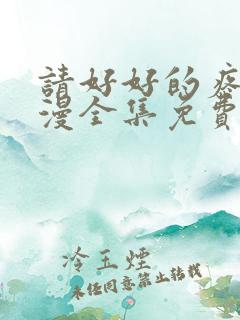 請好好的疼
漫全集免費
冷玉煙
未经同意禁止转载